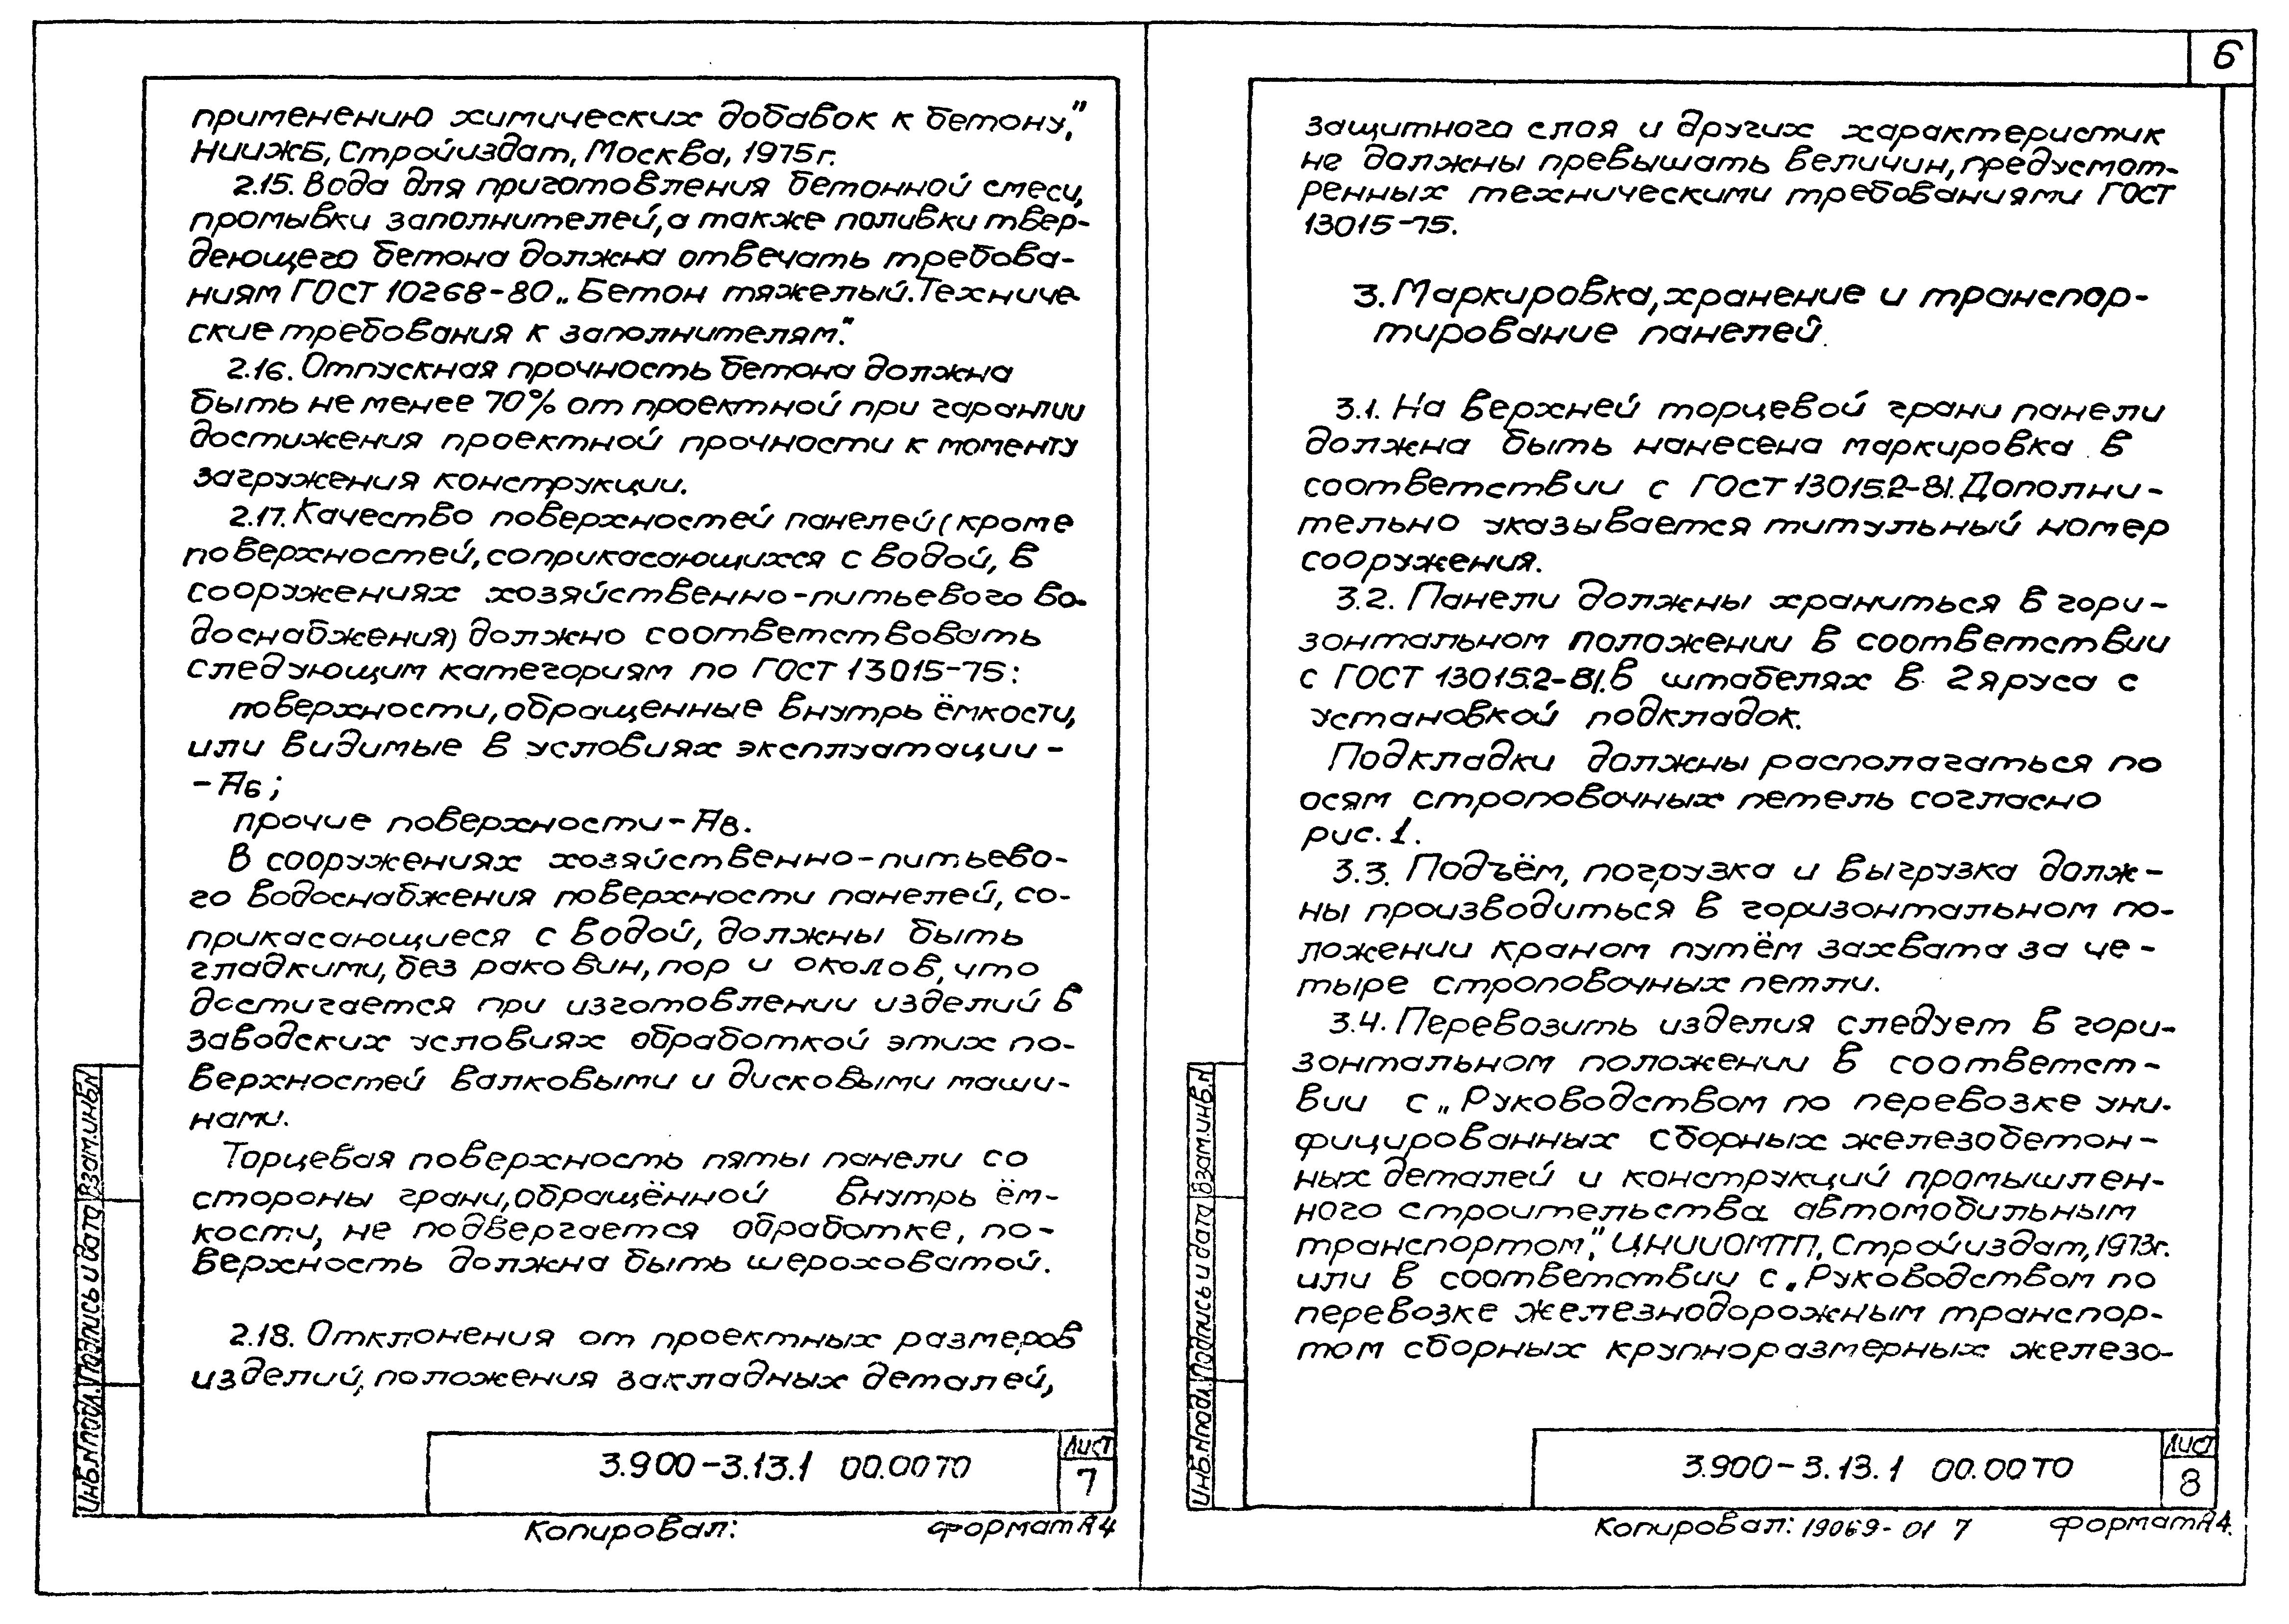 применению химических добавок к бетону,"
НИИЖБ, Стройиздат, Москва, 1975г.
2.15. Вода для приготовления бетонной смеси,
промывки заполнителей, а также поливки твер-
деющего бетона должна отвечать требова-
ниям ГОСТ 10268-80 „Бетон тяжелый. Техниче-
ские требования к заполнителям".
2.16. Отпускная прочность бетона должна
быть не менее 70% от проектной при гарантии
достижения проектной прочности к моменту
загружения конструкции.
2.17. Качество поверхностей панелей (кроме
поверхностей, соприкасающихся с водой, в
сооружениях хозяйственно-питьевого во-
доснабжения) должно соответствовать
следующим категориям по ГОСТ 13015-75:
поверхности, обращенные внутрь ёмкости,
или видимые в условиях эксплуатации -
- А6;
прочие поверхности - А8.
В сооружениях хозяйственно-питьево-
го водоснабжения поверхности панелей, со-
прикасающиеся с водой, должны быть
гладкими, без раковин, пор и околов, что
достигается при изготовлении изделий в
заводских условиях обработкой этих по-
верхностей валковыми и дисковыми маши-
нами.
Торцевая поверхность пяты панели со
стороны грани, обращённой внутрь ём-
кости, не подвергается обработке, по-
верхность должна быть шероховатой.
2.18. Отклонения от проектных размеров
изделий, положения закладных деталей,
Взам.инв.N
Подпись и дата
Инв.N подл.
3.900-3.13.1 00.00 ТО
Лист
7
Копировал:
формат А4
6
защитного слоя и других характеристик
не должны превышать величин, предусмот-
ренных техническими требованиями ГОСТ
13015-75.
3. Маркировка, хранение и транспор-
тирование панелей.
3.1. На верхней торцевой грани панели
должна быть нанесена маркировка в
соответствии с ГОСТ 13015.2-81. Дополни-
тельно указывается титульный номер
сооружения.
3.2. Панели должны храниться в гори-
зонтальном положении в соответствии
с ГОСТ 13015.2-81. в штабелях в 2 яруса с
установкой подкладок.
Подкладки должны располагаться по
осям строповочных петель согласно
рис. 1.
3.3. Подъём, погрузка и выгрузка долж-
ны производиться в горизонтальном по-
ложении краном путём захвата за че-
тыре строповочных петли.
3.4. Перевозить изделия следует в гори-
зонтальном положении в соответст-
вии с „Руководством по перевозке уни-
фицированных сборных железобетон-
ных деталей и конструкций промышлен-
ного строительства автомобильным
транспортом", ЦНИИОМТП, Стройиздат, 1973г.
или в соответствии с „Руководством по
перевозке железнодорожным транспор-
том сборных крупноразмерных железо-
Взам.инв.N
Подпись и дата
Инв.N подл.
3.900-3.13.1 00.00 ТО
Лист
8
Копировал: 19069-01 7
формат А4